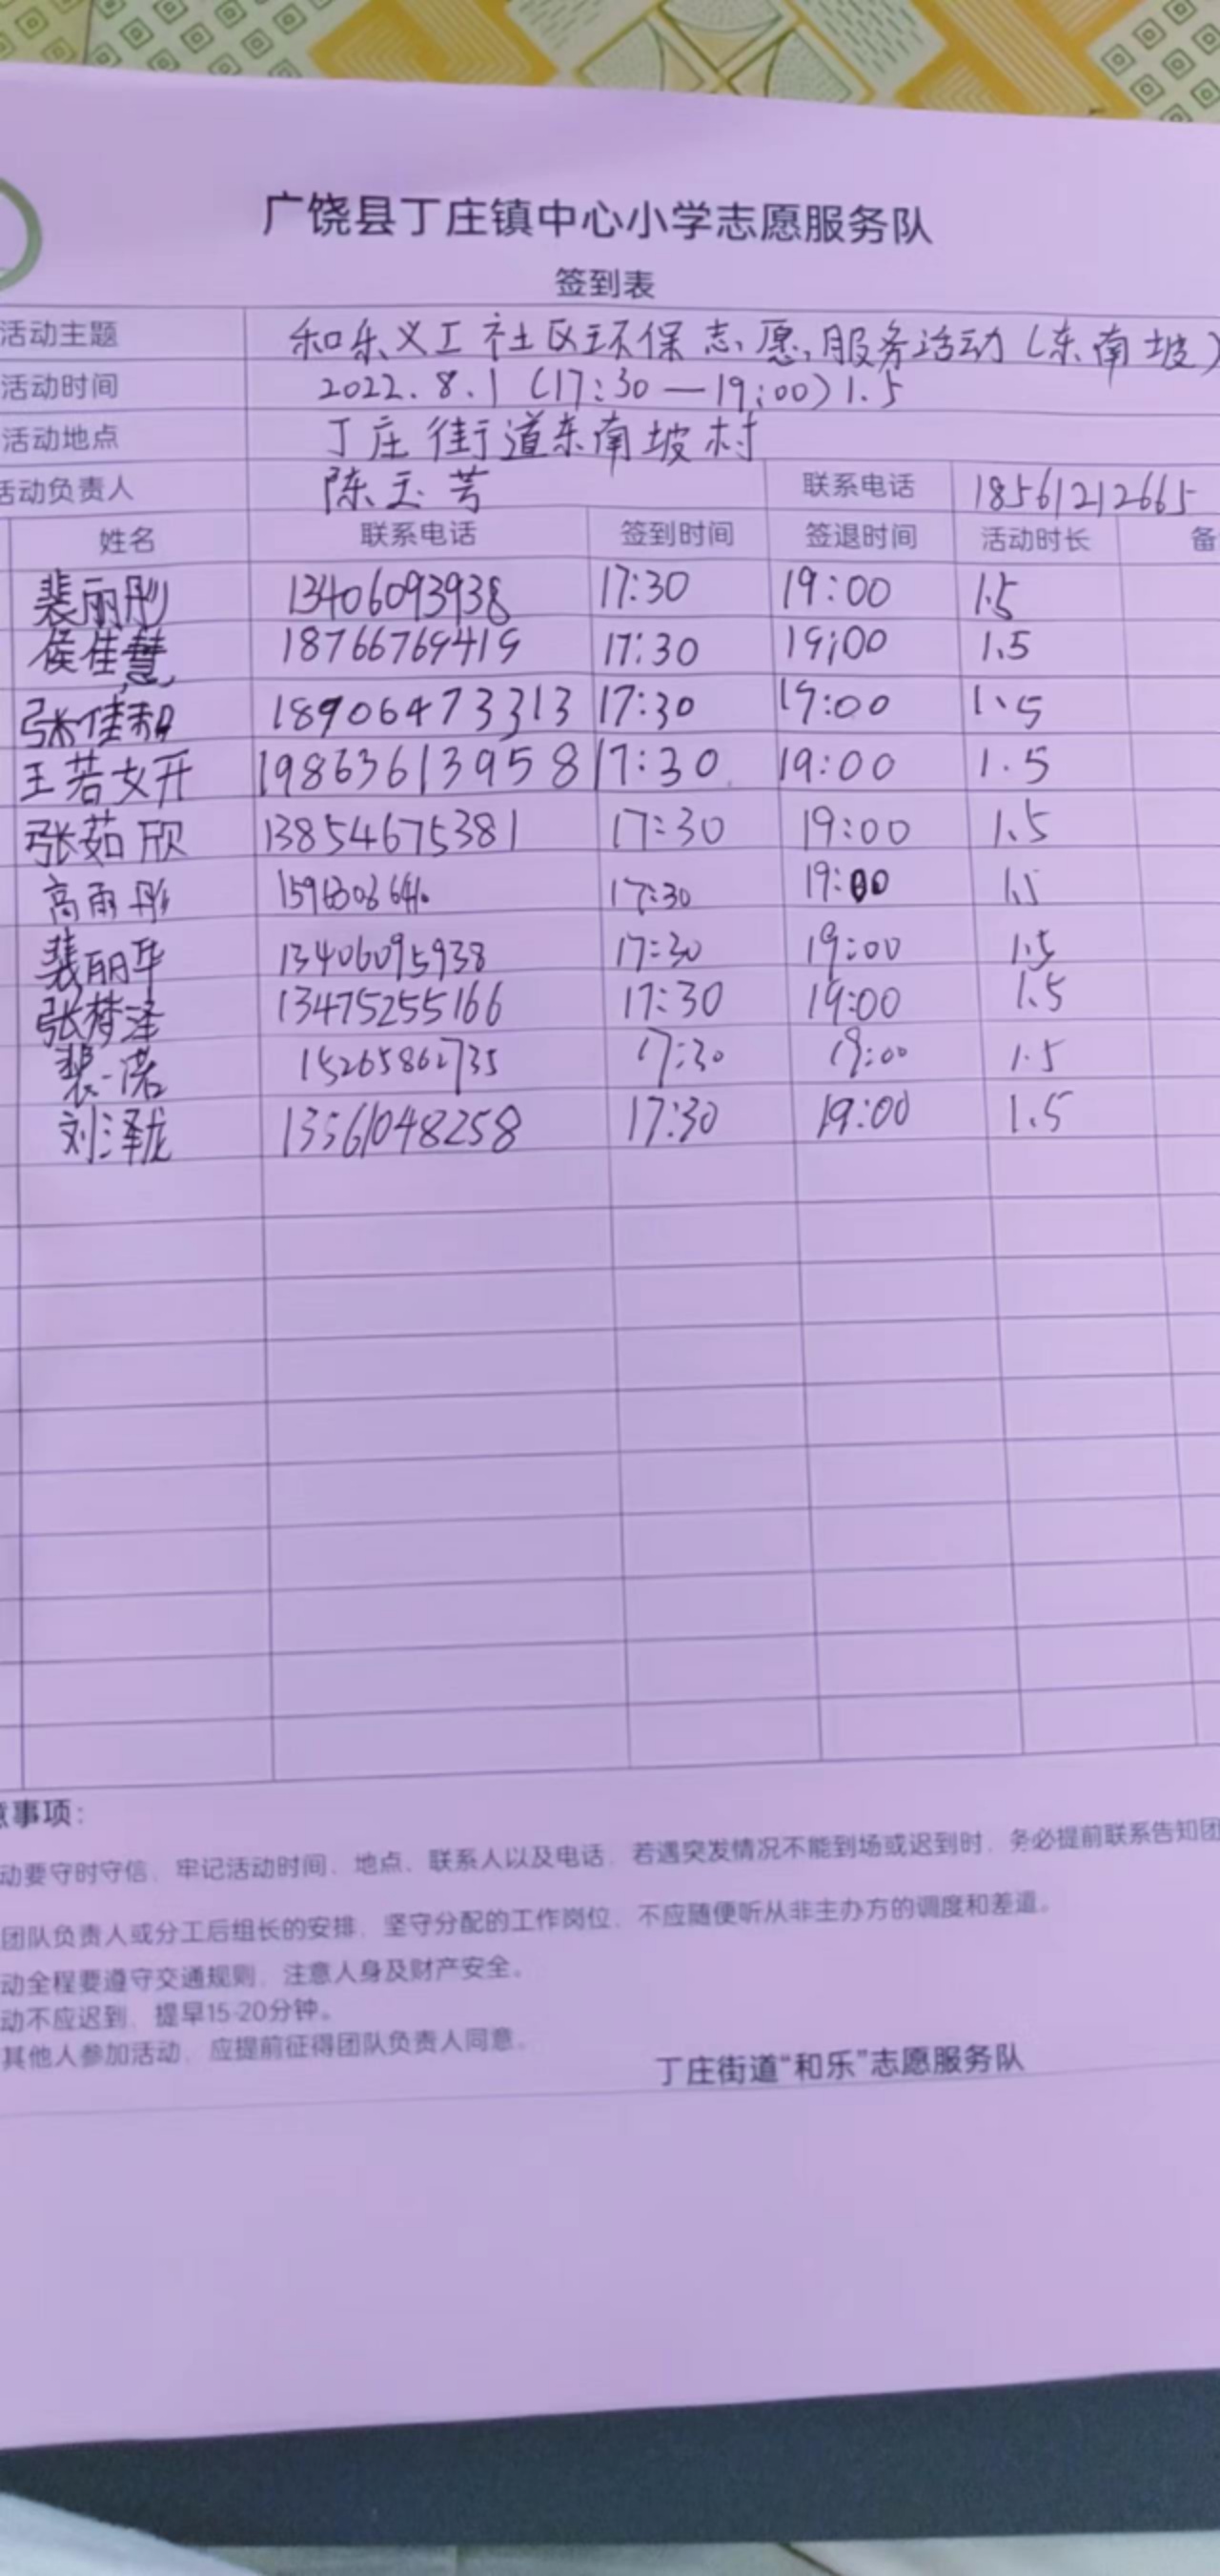 广饶县丁庄镇中心小学志愿服务队
签到表
活动主题 和乐义工社区环保志愿服务活动(东南坡)
活动时间 2022.8.1(17:30—19:00)1.5
活动地点 丁庄街道东南坡村
活动负责人 陈玉芳 联系电话 18561212665
姓名 联系电话 签到时间 签退时间 活动时长 备
裴丽彤 13406093938 17:30 19:00 1.5
侯佳慧 18766769419 17:30 19:00 1.5
张佳 18906473313 17:30 19:00 1.5
王若妍 19863613958 17:30 19:00 1.5
张茹欣 13854675381 17:30 19:00 1.5
高雨彤 17:30 19:00 1.5
裴丽华 13406095938 17:30 19:00 1.5
张梦泽 13475255166 17:30 19:00 1.5
裴一诺 15265862735 17:30 19:00 1.5
刘泽龙 13561048258 17:30 19:00 1.5
意事项:
动要守时守信,牢记活动时间、地点、联系人以及电话,若遇突发情况不能到场或迟到时,务必提前联系告知团
团队负责人或分工后组长的安排,坚守分配的工作岗位,不应随便听从非主办方的调度和差遣。
动全程要遵守交通规则,注意人身及财产安全。
动不应迟到,提早15-20分钟。
其他人参加活动,应提前征得团队负责人同意。
丁庄街道“和乐”志愿服务队